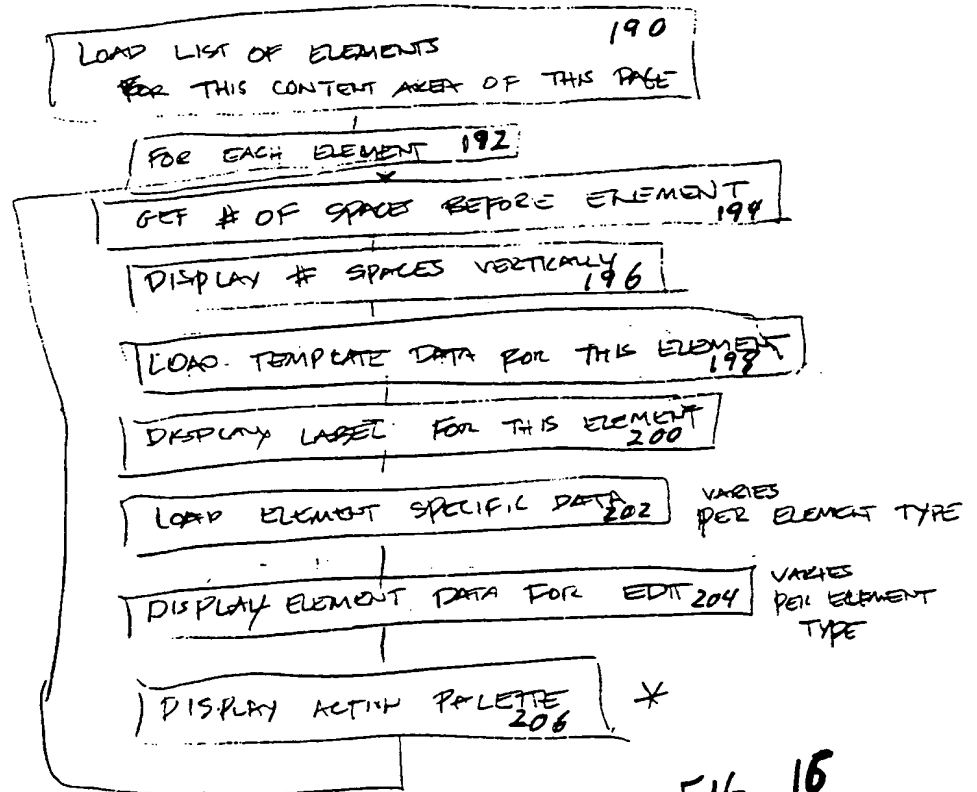 LOAD LIST OF ELEMENTS 190
FOR THIS CONTENT AREA OF THIS PAGE
FOR EACH ELEMENT 192
GET # OF SPACES BEFORE ELEMENT
194
DISPLAY # SPACES VERTICALLY
196
LOAD TEMPLATE DATA FOR THIS ELEMENT
198
DISPLAY LABEL FOR THIS ELEMENT
200
LOAD ELEMENT SPECIFIC DATA 202
VARIES
PER ELEMENT TYPE
DISPLAY ELEMENT DATA FOR EDIT 204
VARIES
PER ELEMENT
TYPE
DISPLAY ACTION PALETTE *
206
FIG. 16